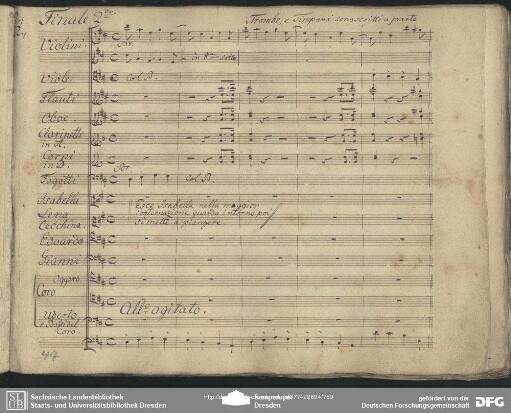 Finale 2do
Trombe, e Timpani sono scritti a parte
Violini.
For.
in 8va sotto
Viole
Col B.
Flauti
Oboe
Clarinetti
in A.
Corni
in D.
For
Fagotti
Col B.
Isabella
Esce Isabella nella maggior
Lena
costernazione guarda intorno poi
Cecchina
si mette a piangere
Edoardo
Gianni
Soprni
Coro
All° agitato.
Uberto
e Bassi del
Coro.
Sächsische Landesbibliothek
Staats- und Universitätsbibliothek Dresden
Dresden
gefördert von der
Deutschen Forschungsgemeinschaft
DFG